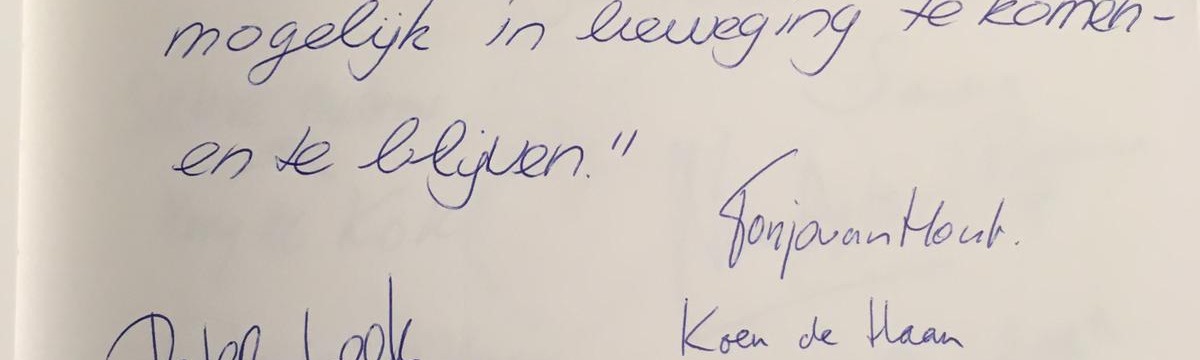 mogelijk in beweging te komen-
en te blijven."
Tonja van Hout.
Koen de Haan